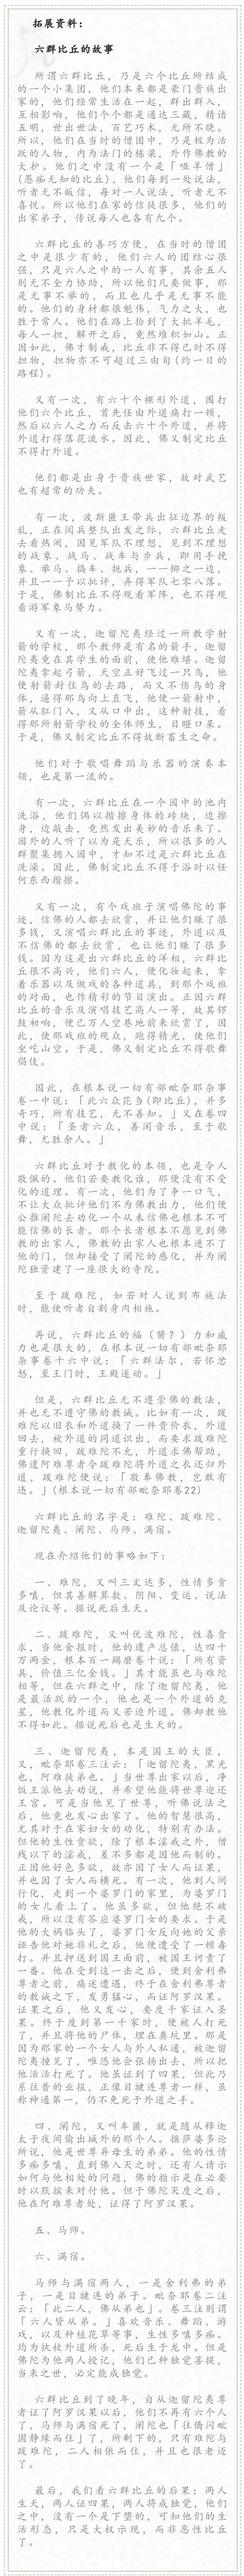 拓展资料：
六群比丘的故事
所谓六群比丘，乃是六个比丘所结成
的一个小集团，他们本来都是豪门贵族出
家的，他们经常生活在一起，群出群入，
互相影响，他们个个都是通达三藏，精谙
五明，世出世法，百艺巧术，无所不晓。
所以，他们在当时的僧团中，乃是极为活
跃的人物，内为法门的栋梁，外作佛教的
大护。他们之中没有一个是「哑羊僧」
(愚痴无知的比丘)，他们每到一处说法，
听者无不皈信，每对一人说法，听者无不
喜悦。所以他们在家的信徒很多，他们的
出家弟子，传说每人也各有九个。
六群比丘的善巧方便，在当时的僧团
之中是很少有的，他们六人的团结心很
强，只是六人之中的一人有事，其余五人
则无不全力协助，所以他们凡要做事，那
是无事不举的，而且也几乎是无事不能
的。他们的身材都很魁伟，气力之大，也
胜于常人。他们在路上拾到了大批羊毛，
每人一担，解开之后，竟然堆积如山。正
因如此，佛才制戒，比丘非不得已时不得
担物，担物亦不可超过三由旬(约一日的
路程)。
又有一次，有六十个裸形外道，围打
他们六个比丘，首先任由外道痛打一顿，
然后以六人之力而反击六十个外道，并将
外道打得落花流水。因此，佛又制定比丘
不得打外道。
他们都是出身于贵族世家，故对武艺
也有超常的功夫。
有一次，波斯匿王带兵出征边界的叛
乱，正在阅兵整队出发之际，六群比丘走
去看热闹，因见军队不理想，见到不理想
的战象、战马、战车与步兵，即用手搅
象、举马、捣车、扼兵，一一掷之一边，
并且一一予以批评，弄得军队七零八落。
于是，佛制比丘不得观看军阵，也不得观
看游军象马势力。
又有一次，迦留陀夷经过一所教学射
箭的学校，那个教师是有名的箭手，迦留
陀夷竟在其学生的面前，使他难堪。迦留
陀夷拿起弓箭，天空正好飞过一只鸟，他
便射箭封住鸟的去路，而又不伤鸟的身
体，逼得那鸟向上直飞，他便一箭射中，
箭从肛门入，又从口中出，这种射技，看
得那所射箭学校的全体师生，目瞪口呆。
于是，佛又制定比丘不得故断畜生之命。
他们对于歌唱舞蹈与乐器的演奏本
领，也是第一流的。
有一次，六群比丘在一个园中的池内
洗浴，他们偶以揩擦身体的砖块，边擦
身，边敲击，竟然发出美妙的音乐来了。
园外的人听了以为是天乐，所以很多的人
群聚集拥入园中，才知不过是六群比丘在
洗澡。因此，佛制定比丘不得于浴时以任
何东西揩擦。
又有一次，有个戏班子演唱佛陀的事
迹，信佛的人都去欣赏，并让他们赚了很
多钱，又演唱六群比丘的事迹，外道以及
不信佛的都去欣赏，也让他们赚了很多
钱。因为这是出六群比丘的洋相，六群比
丘很不高兴，他们六人，便化妆起来，拿
着乐器以及做戏的各种道具，到那个戏班
的对面，也作精彩的节目演出。正因六群
比丘的音乐及演唱技艺高人一等，故其锣
鼓和响，便已万人空巷地前来欣赏了，因
此，使那戏班的观众，跑得精光，使他们
坐吃山空。于是，佛又制定比丘不得歌舞
倡伎。
因此，在根本说一切有部毗奈耶杂事
卷一中说：「此六众苾刍(即比丘)，并多
奇巧，所有技艺，无不善知。」又在卷四
中说：「圣者六众，善闲音乐，至于歌
舞，尤胜余人。」
六群比丘对于教化的本领，也是令人
敬佩的。他们若要教化谁，那便没有不受
化的道理。有一次，他们为了争一口气，
不让大众批评他们不为佛教出力，他们便
公推阐陀去劝化一个从未信佛也根本不可
能信佛的长者。那个长者根本不愿见到佛
教的出家人，佛教的出家人也根本进不了
他的门，但却接受了阐陀的感化，并为阐
陀独资建了一座很大的寺院。
至于跋难陀，如若对人说到布施法
时，能使听者自割身肉相施。
再说，六群比丘的福（箇？）力和威
力也是很大的，在根本说一切有部毗奈耶
杂事卷十六中说：「六群法尔，若怀忿
怒，至王门时，王殿遥动。」
但是，六群比丘无不遵崇佛的教法，
并也无不遵守佛的教诫。比如有一次，跋
难陀以旧衣和外道换了一件贵价衣，外道
回去，被外道的同道识出，而要求跋难陀
重行换回，跋难陀不允，外道求佛帮助，
佛遣阿难尊者令跋难陀将外道之衣还归外
道，跋难陀便说：「敬奉佛教，乞敢有
违。」(根本说一切有部毗奈耶卷22)
六群比丘的名字是：难陀、跋难陀、
迦留陀夷、阐陀、马师、满宿。
现在介绍他们的事略如下：
一、难陀，又叫三文达多，性情多贪
多嗔，但其善解算数、阴阳、变运、说法
及论议等。据说死后生天。
二、跋难陀，又叫优波难陀，性喜贪
求，当他舍报时，他的遗产总值，达四十
万两金，根本百一羯磨卷十说：「所有资
具，价值三亿金钱。」其才能虽也与难陀
相等，但在六群之中，除了迦留陀夷，他
是最活跃的一个，他也是一个外道的克
星，他教化外道而又苦迫外道。佛却教他
不得如此。据说死后也是生天的。
三、迦留陀夷，本是国王的大臣，
又，毗奈耶卷三注云：「迦留陀夷，黑光
也，阿难徒弟也。」当世尊出家以后，净
饭王派他去劝说，并希望他能将世尊迎还
王宫。可是当他见了世尊，听佛说法之
后，他竟也发心出家了。他的智慧很高，
尤其对于在家妇女的劝化，特别有办法。
但他的生性贪欲，除了根本淫戒之外，僧
残以下的淫戒，差不多都是因他而制的。
正因他好色多欲，故亦因了女人而证果，
并也因了女人而横死。有一次，他到人间
行化，走到一个婆罗门的家里，为婆罗门
的女儿看上了。他虽多欲，但他绝不破
戒，所以没有答应婆罗门女的要求。于是
他的大祸临头了，婆罗门女反向她的父亲
诬告他对她非礼之后，他便遭受了一顿毒
打。并且押送到国王面前，被国王诃责了
一番。他在受到这一击之后，便到舍利弗
尊者之前，痛述遭遇，终于在舍利弗尊者
的教诫之下，发勇猛心，而证阿罗汉果。
证果之后，他又发心，要度千家证入圣
果。终于度到第一千家时，便被人打死
了，并且将他的尸体，埋在粪坑里。那是
因为那家的一个女人与外人私通，被迦留
陀夷撞见了，唯恐他会张扬出去，所以把
他活活打死了。他虽证到了四果，但此乃
系往昔的业报，正像目犍连尊者一样，虽
称神通第一，仍不免死于外道之手。
四、阐陀，又叫车匿，就是随从释迦
太子夜间偷出城外的那个人。据萨婆多论
所说，他是世尊异母生的弟弟。他的性情
多痴多嗔，直到佛入灭之时，还有人请示
如何与他相处的问题，佛的指示是在必要
时以默摈来对付他。但于佛陀灭度之后，
他在阿难尊者处，证得了阿罗汉果。
五、马师。
六、满宿。
马师与满宿两人，一是舍利弗的弟
子，一是目犍连的弟子。毗奈耶卷二注
云：「此二人，佛从弟也。」卷三注则谓
「六人皆从弟。」喜欢音乐、舞蹈、游
戏，以及种植花草等事，生性多嗔多痴。
均为执杖外道所杀，死后生于龙中。但是
佛陀为他两人授记，他们已种独觉菩提，
当来之世，必定能成独觉。
六群比丘到了晚年，自从迦留陀夷尊
者证了阿罗汉果以后，他们不再有六个人
了，马师与满宿死了，阐陀也「往憍闪毗
国静缘而住」了，所剩下的，只有难陀与
跋难陀，二人相依而住，并且也很老迈
了。
最后，我们看六群比丘的后果：两人
生天，两人证四果，两人将成独觉，他们
之中，没有一个是下堕的，可知他们的生
活形态，只是大权示现，而非恶性比丘
了。